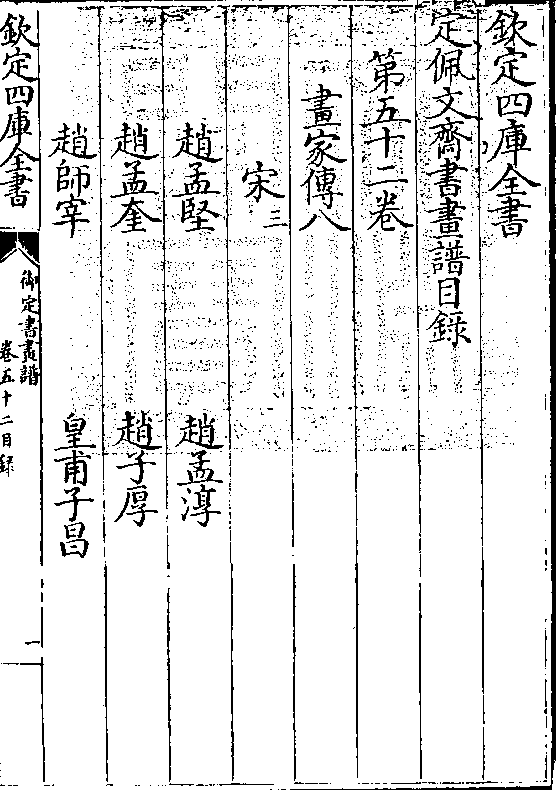 欽定四庫全書
定佩文齋書畫譜目録
第五十二卷
畫家傳八
宋三
趙孟堅 趙孟淳
趙孟奎 趙子厚
趙師宰 皇甫子昌
欽定四庫全書
御定書畫譜
卷五十二目録
一